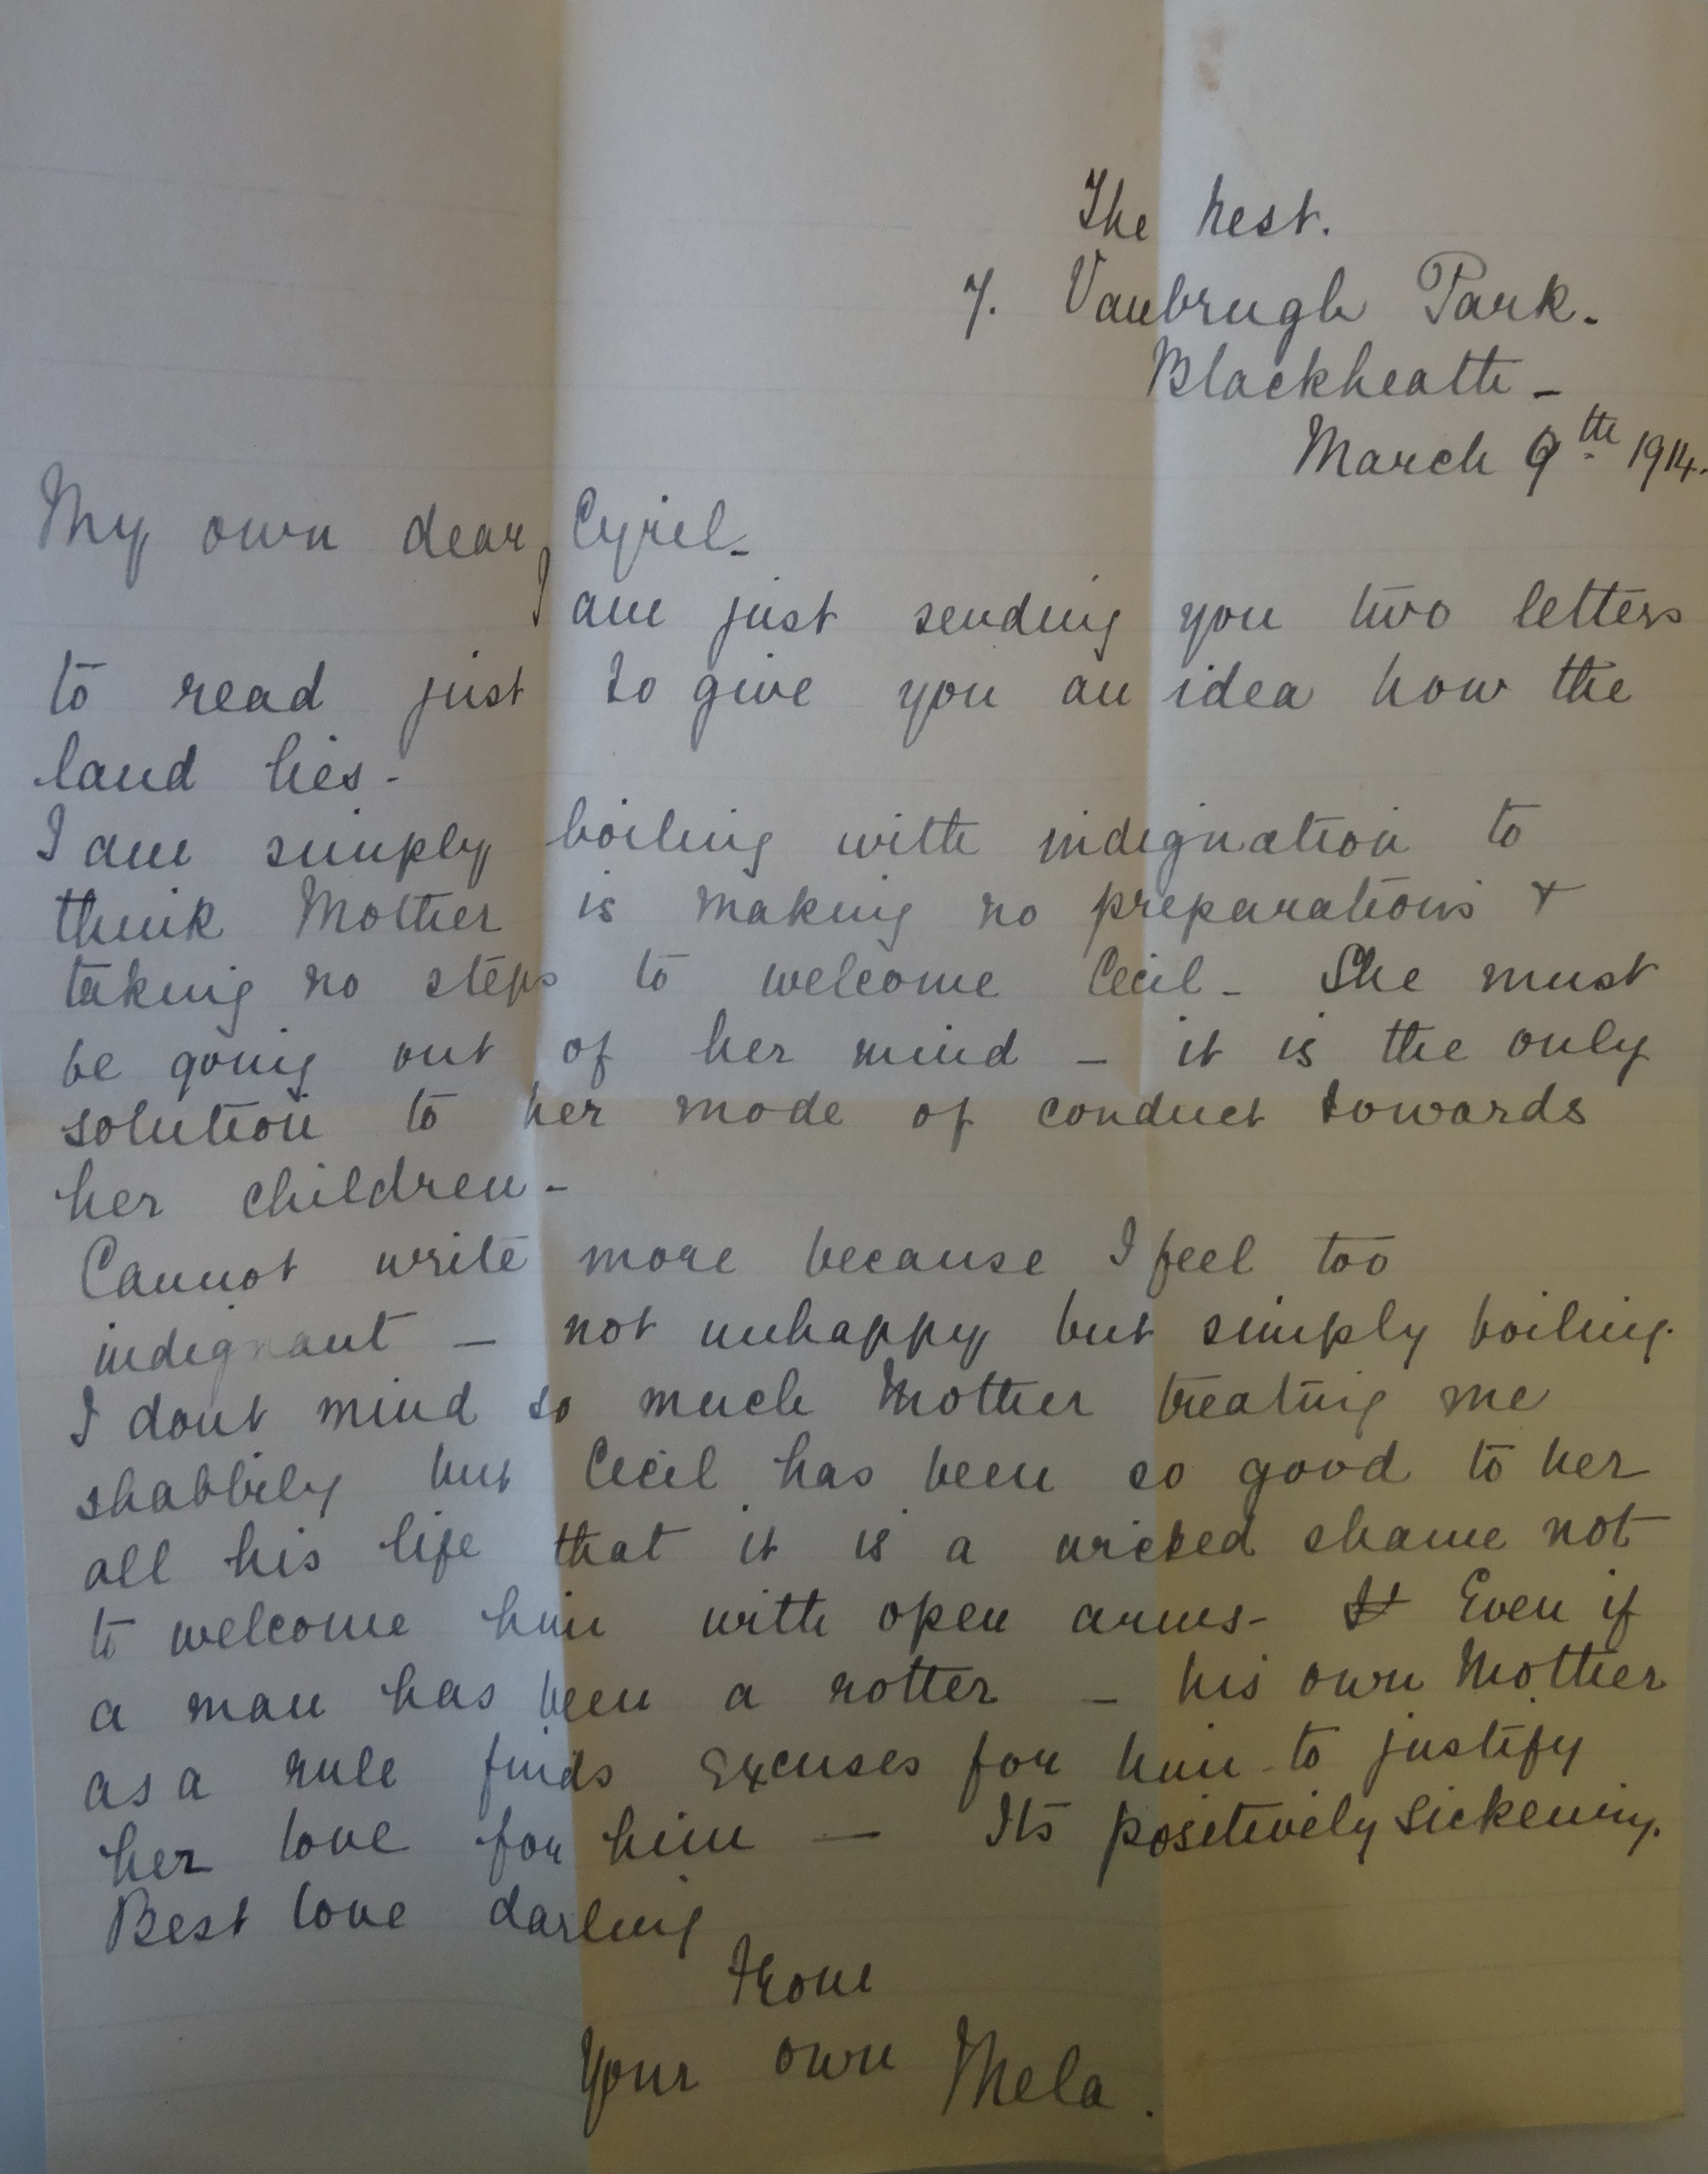 The Nest.
7. Vanbrugh Park.
Blackheath -
March 9th 1914.
My own dear Cyril -
I am just sending you two letters
to read just to give you an idea how the
land lies -
I am simply boiling with indignation to
think Mother is making no preparations +
taking no steps to welcome Cecil - She must
be going out of her mind - it is the only
solution to her mode of conduct towards
her children -
Cannot write more because I feel too
indignant - not unhappy but simply boiling.
I dont mind so much Mother treating me
shabbily but Cecil has been so good to her
all his life that it is a wicked shame not
to welcome him with open arms - It Even if
a man has been a rotter - his own Mother
as a rule finds excuses for him to justify
her love for him - Its positively sickening.
Best love darling
From
Your own Mela.